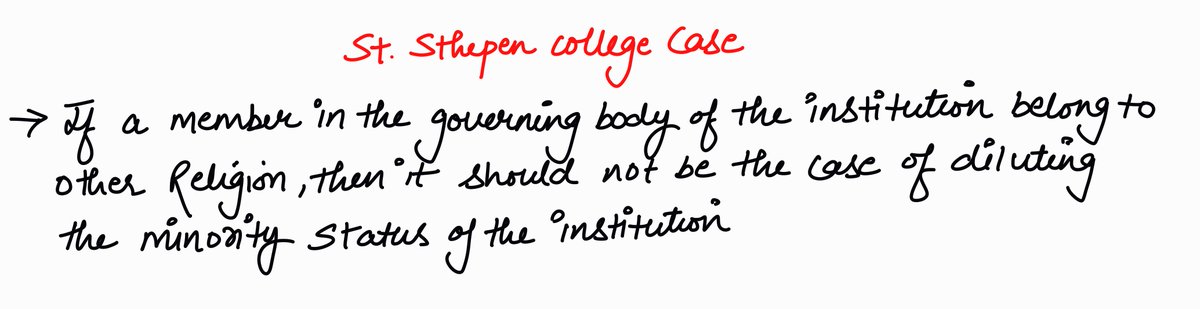 St. Sthepen college Case
→ If a member in the governing body of the institution belong to
other Religion, then it should not be the case of diluting
the minority status of the institution